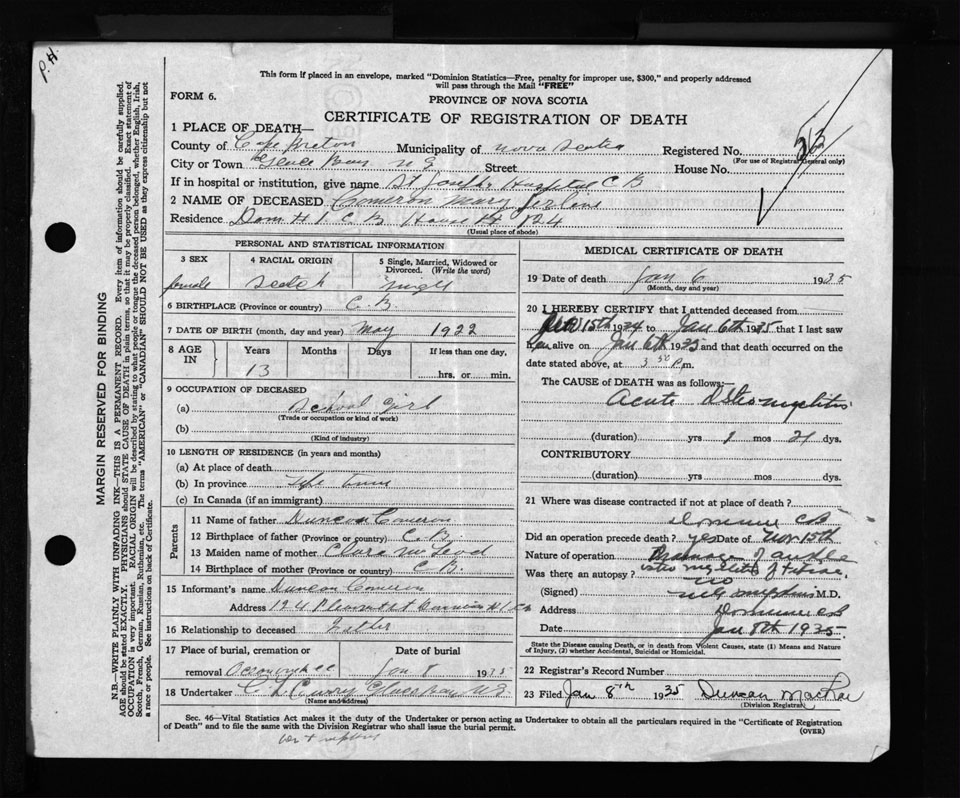 P.H.
This form if placed in an envelope, marked "Dominion Statistics—Free, penalty for improper use, $300," and properly addressed
will pass through the Mail "FREE"
FORM 6.
PROVINCE OF NOVA SCOTIA
CERTIFICATE OF REGISTRATION OF DEATH
1 PLACE OF DEATH—
County of Cape Breton Municipality of Nova Scotia Registered No.
(For use of Registrar General only)
City or Town Glace Bay N S Street House No.
If in hospital or institution, give name St Joseph's Hospital C B
2 NAME OF DECEASED Cameron Mary
Residence Dom # 1 C. B. House # 124
(Usual place of abode)
PERSONAL AND STATISTICAL INFORMATION
3 SEX
4 RACIAL ORIGIN
5 Single, Married, Widowed or Divorced. (Write the word)
female Scotch single
6 BIRTHPLACE (Province or country) C. B.
7 DATE OF BIRTH (month, day and year) May 1922
8 AGE IN Years Months Days If less than one day,
13 hrs. or min.
9 OCCUPATION OF DECEASED
(a) School Girl
(Trade or occupation or kind of work)
(b)
(Kind of industry)
10 LENGTH OF RESIDENCE (in years and months)
(a) At place of death
(b) In province Life time
(c) In Canada (if an immigrant)
Parents
11 Name of father Duncan Cameron
12 Birthplace of father (Province or country) C. B.
13 Maiden name of mother Clara McLeod
14 Birthplace of mother (Province or country) C B.
15 Informant's name Duncan Cameron
Address 124
16 Relationship to deceased Father
17 Place of burial, cremation or Date of burial
removal Jan 8 1935
18 Undertaker Curry Glace Bay N.S.
(Name and address)
MEDICAL CERTIFICATE OF DEATH
19 Date of death Jan 6 1935
(Month, day and year)
20 I HEREBY CERTIFY that I attended deceased from
15th 1934 to Jan 6th 1935 that I last saw
her alive on Jan 6th 1935 and that death occurred on the
date stated above, at 3 50 P.m.
The CAUSE of DEATH was as follows:—
Acute Osteomyelitis
(duration) yrs 1 mos 21 dys.
CONTRIBUTORY
(duration) yrs mos dys.
21 Where was disease contracted if not at place of death?
Dominion CB
Did an operation precede death? yes Date of Nov 15th
Nature of operation Drainage of
Was there an autopsy? osteomyelitis of
no
(Signed) M.D.
Address Dominion CB
Date Jan 8th 1935
State the Disease causing Death, or in death from Violent Causes, state (1) Means and Nature of Injury, (2) whether Accidental, Suicidal or Homicidal.
22 Registrar's Record Number
23 Filed Jan 8th 1935 Duncan MacRae
(Division Registrar)
Sec. 46—Vital Statistics Act makes it the duty of the Undertaker or person acting as Undertaker to obtain all the particulars required in the "Certificate of Registration
of Death" and to file the same with the Division Registrar who shall issue the burial permit.
(OVER)
MARGIN RESERVED FOR BINDING
N.B.—WRITE PLAINLY WITH UNFADING INK—THIS IS A PERMANENT RECORD. Every item of information should be carefully supplied.
AGE should be stated EXACTLY. PHYSICIANS should STATE CAUSE OF DEATH in plain terms, so that it may be properly classified. Exact statement of
OCCUPATION is very important. RACIAL ORIGIN will be described by stating to what people or tongue the deceased person belonged, whether English, Irish,
Scotch, French, German, Russian, Ruthenian, etc. The terms "AMERICAN" or "CANADIAN" SHOULD NOT BE USED as they express citizenship but not
a race or people. See instructions on back of Certificate.